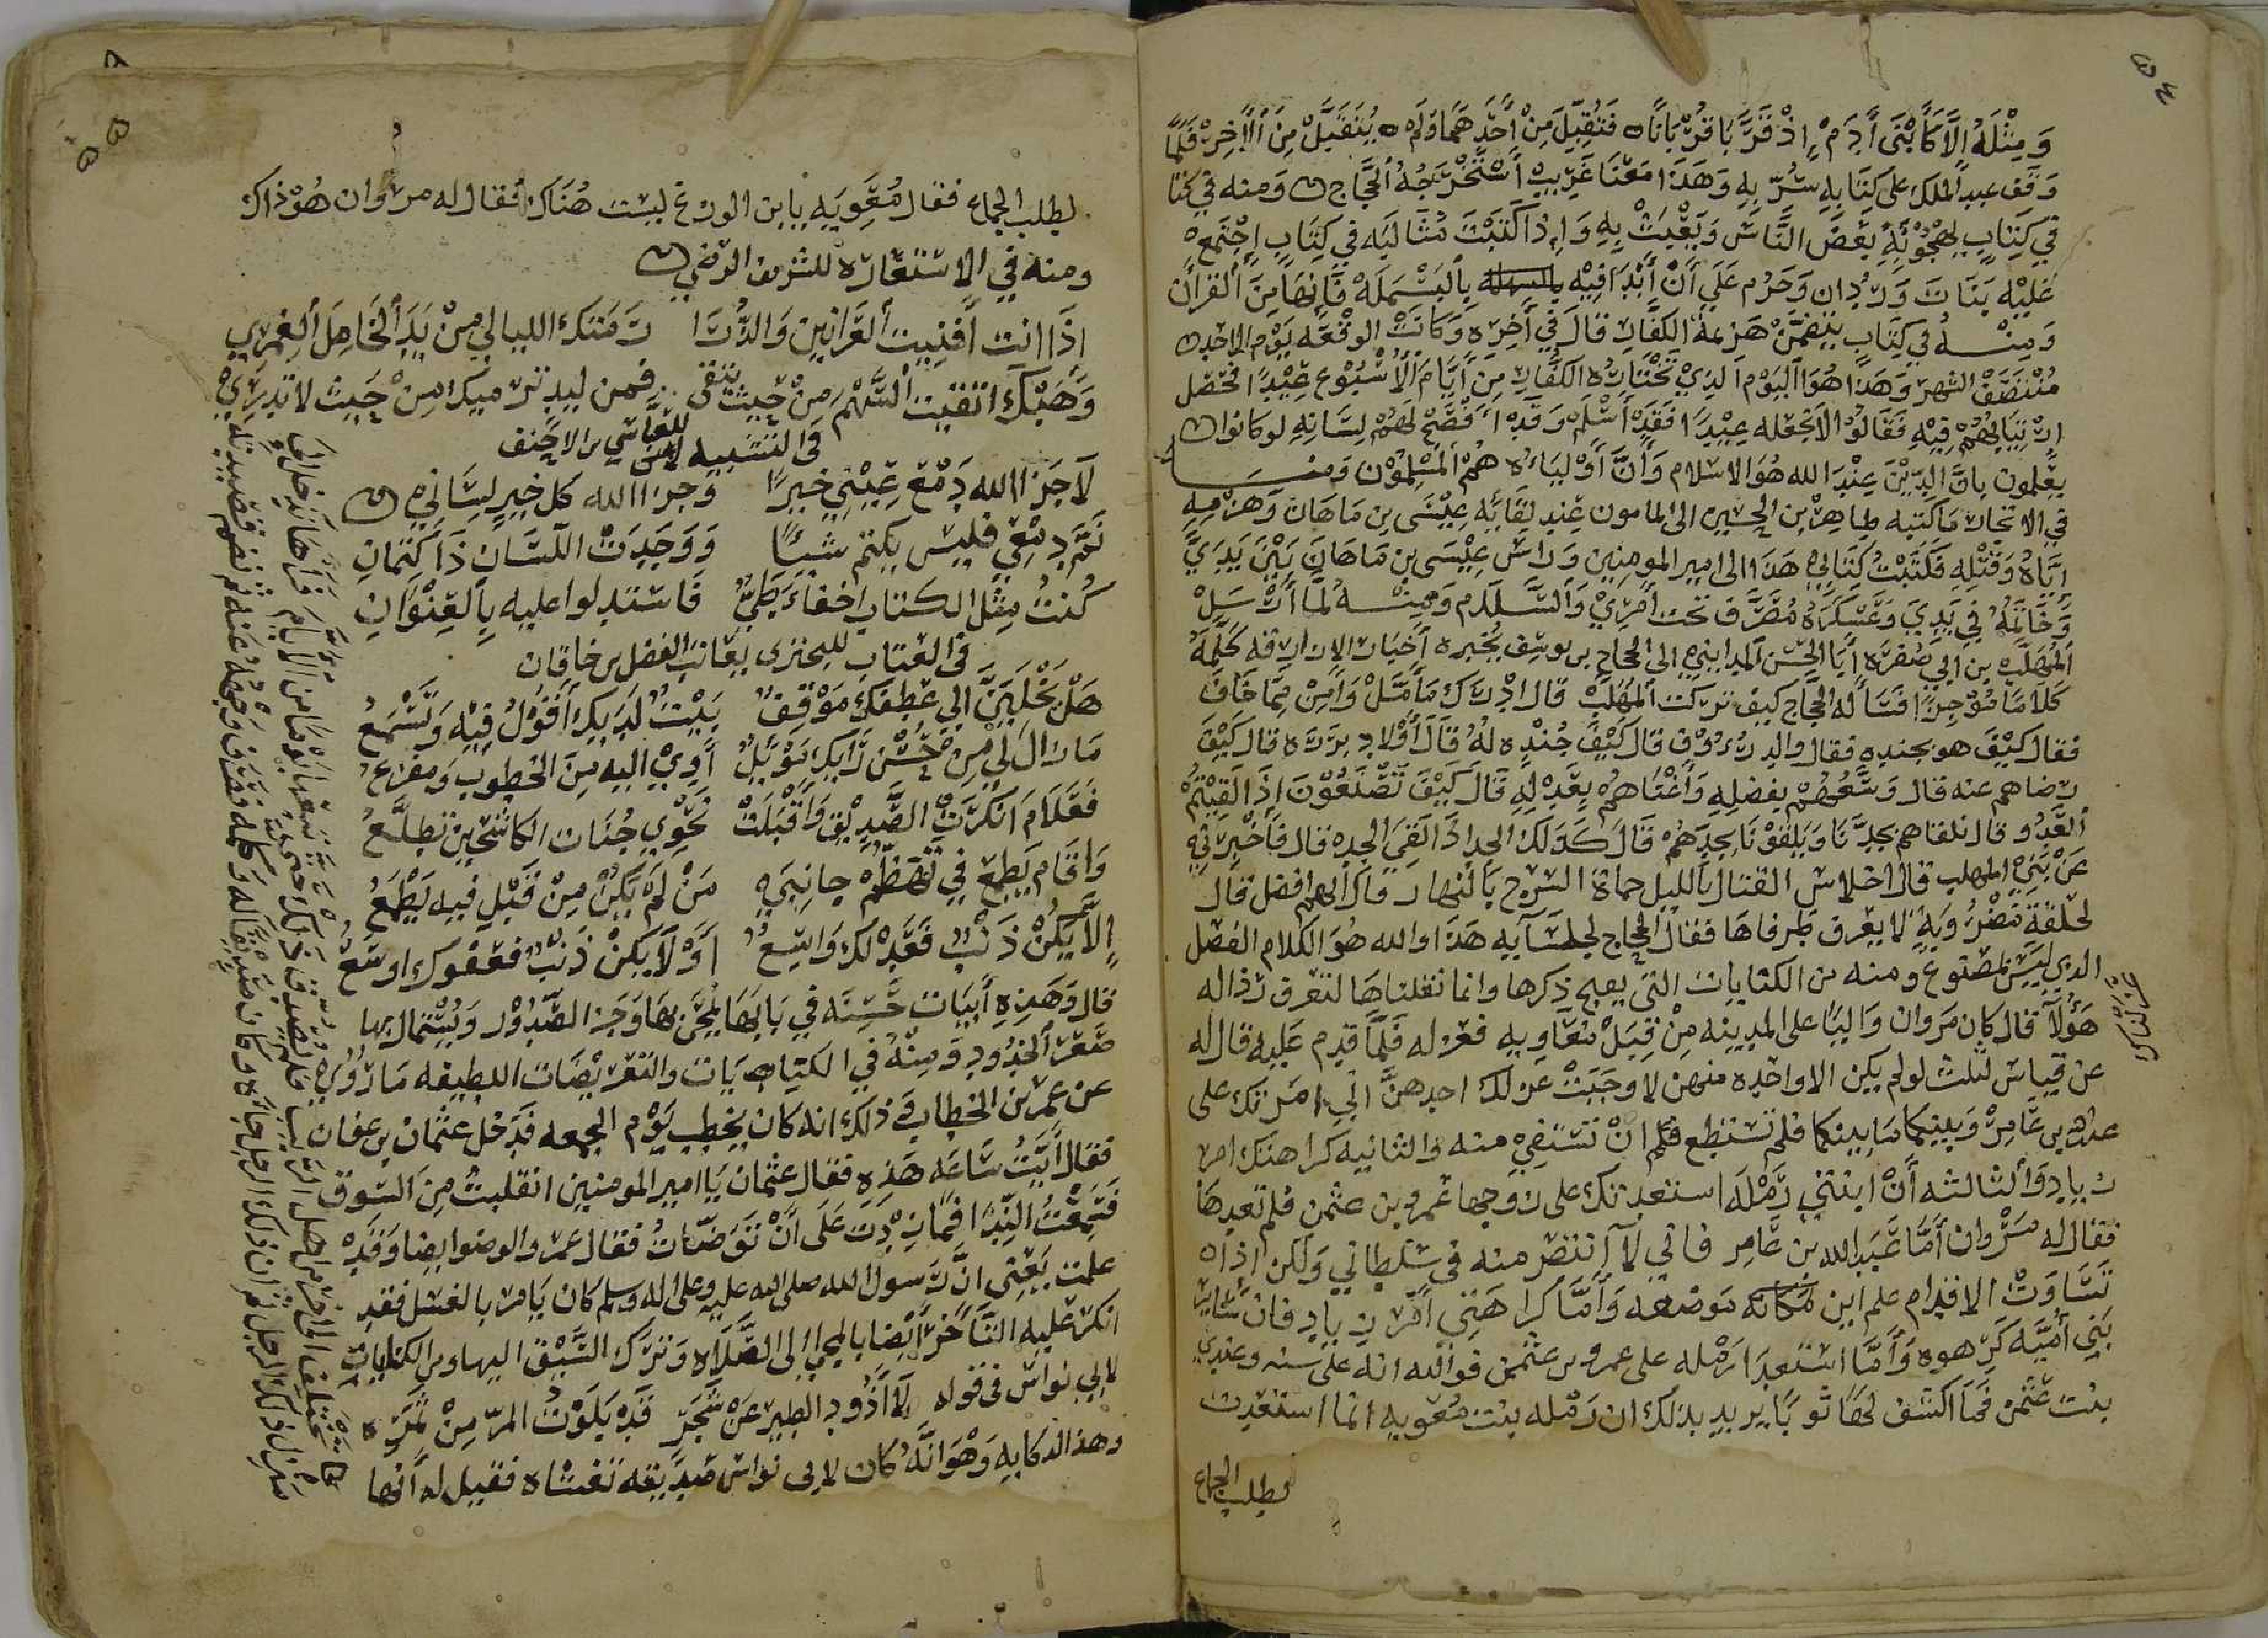 ٥٤
وَمِثْلَهُ إِلَّا كَابْنَى أَدَمْ إِذْ قَرَّبَا قُرْبَانًا فَتُقُبِّلَ مِنْ أَحَدِهَمَا وَلَم يُتَقَبَّلْ مِنَ الْأَخِرْ فَلَمَّا
وَقَف عبد الملك على كتابهِ سُرّ بِهِ وَهَذَا مَعْنَا غَرِيبْ أَسْتَخْرَجَهُ الْحَجَّاج ومنه في كتا
في كِتَابٍ لهجْوُتهِ بَعْضَ النَّاسَ وَبَعْيَثْ بِهِ وَإِذَا كَتَبْتَ مَثَالِبَه في كِتَابٍ إِجْتَمِعْ
عَلَيْه بَنَاتَ وَرْدَان وَحَرُم عَلَي أَنْ أَبْدَا فِيْه بالْبَسْمَلَهْ فَإِنهَا مِنَ الْقرأن
وَمِنْهُ في كِتَابٍ يتضمَّنْ هَزيمَة الكفَّار قالَ في أَخِرِه وَكَانَتْ الوقْعَه يَوْم الاحد
مُنْتَصَفْ الشهر وَهَذَا هُوَ الْيَوْم الَّذِيْ تَخْتَارُه الكفَّار مِنْ أَيَّام الْأُسْبُوْع عِيْدًا فحصل
ارْتِيَابهُمْ فِيْه فَقَالُوْا لَا تَجْعَله عِيْدًا فَقَدْ أَسْلَمْ وَقَدْ أَفْصَحْ لَهُمْ لِسَانِهِ لو كانوا
يعْلمون بانَّ الدِّيْنَ عِنْدَ الله هُوَ الاسلام وَأَنَّ أَوْلِيَاءَهُ هُمْ الْمُسْلِمُوْن وَمنه
في الايجاز مَا كَتبه طاهرْ بن الحسين الى المامون عِنْد لقَائه عِيْسَى بن مَاهَان وَهزْمِهِ
إِيَّاهُ وَقَتْلِهِ فَكَتَبْتُ كِتَابي هَذَا الى امير المومِنِين وَراسَ عِيْسَى بن مَاهَان بَيْنَ يَدَيَّ
وَخَاتَمُهُ فِي يَدِي وَعَسْكَرَهُ مُصَرَّف تحت أَمْرِيْ وَالسَّلَام وَمِنْهُ لَمَّا أَرْسَلْ
المُهَلَّبْ بن ابي صُفرَه أَبَا الحسَن المداينى الى الحجاج بن يوسف يُخْبِره أَخْبَار الازارقه كَلَّمَهُ
كَلَامًا مُوْجزًا فَسَأَله الحجاج كيف تركت المُهَلَبْ قال ادْرَك مَا أَمَّلْ وَامِنْ مِمَّا خَافَ
فقال كَيْفَ هو بجنده فقال والد رؤُوْف قال كَيْفَ جُنْدِه لَهُ قَالَ أَوْلاد برَرَة قال كَيْفَ
رضاهم عنه قال وَسَعهُمْ بفضلِهِ وَأَغْنَاهُمْ بِعَدْلِهِ قَال كَيْفَ تَصْنَعُوْن إِذَا لَقِيْتُمْ
العَدُو قال نلقاهم بجدِّنَا وَيَلقَوْنَا بجدِّهُمْ قَالَ كَذلكَ الجد اذَا لَقِيَ الجد قال فَأَخْبِرْني
عَنْ بَنِي المهلب قال احلاس القتال بالليل حماة السرح بَالنهار قال أيهم افضل قال
لحلقةٍ مَضْرُوبةٍ لا يعْرف طرفاهَا فقال الحجاج لجلسَآيه هَذَا والله هُوَ الكلام الفصْل
الذي ليسَ بمصنوع ومنه من الكنايات التي يعبح ذكرها وانما نقلناهَا لتعرف رذاله
هَؤُلَآ قَال كان مَروان وَاليًا على المدينه مِنْ قِبَلْ مُعَاويه فعزله فَلَمَّا قدِم عَليه قال له
عن قِيَاس ثلث لو لم يكن الا واحده منهن لاوجَبَتْ عزلك احدهنَّ انِي امّرتك على
عبدالله بن عَامِرْ وَبينكما مَا بينكما فلم تستطع فلم انْ تشتفيْ منه والثانيه كراهتك امر
زيَاد وَالثالثه أَنْ ابنتي رَمْلَه استعدتك على زوجها عَمرو بن عثمن فلم تعدهَا
فقال له مَرْوان أَمَّا عَبدالله بن عَامِر فاني لآ أنتصر منه في سُلطاني وَلكن اذا
تسَاوَتْ الاقدام علم ابن مَكانه مَوضعه وَأَمَّا كراهَتي أَمْر زيَاد فان سَائر
بَنِي أُمَيَّه كَرهوه وَأَمَّا اسْتعدَا رَمْله على عمرو بن عثمن فوالله انه على سنه وعندي
بنت عُثْمن فمَا أكشف لهَا ثوبًا يريد بذلك ان رَمْله بنت مُعويه انما استَعْدت
لطلب الجماع
٥٥
لطلب الجماع فقال مُعَويَه يا بن الوزغ ليست هُنَاك فقال له مروان هُوْ ذاك
ومنه في الاستعارة للشريف الرضي
إِذَا انت أَفنيت العَرَانِين وَالذُّرَا رَمَتك الليالي مِنْ يَدَ الْخَامِلَ الْغمري
وَهَبْكَ اتّقيت السَّهْمَ مِنْ حَيث يتقى فمن ليد ترميك مِنْ حَيث لا تدري
في التشبيه للعباس بن الاحنف
لَا جَزَا الله دَمْعَ عَيْني خيرًا وَجزا الله كل خيرٍ لِسَاني
نَمّ دمْعي فليس يكتم شيئًا وَوَجَدتْ اللّسَان ذَا كتمانِ
كُنتُ مثل الكتاب اخفاءَ طَيّ فاستدلوا عليه بِالعِنْوَانِ
في العتاب للبحتري يعَاتب الفضل بن خاقان
هَلْ يَحْلبَنَّ الي عَطفك مَوْقفٌ بَيْتٌ لدَيكَ أَقوْلُ فِيْه وَتَسْمَعُ
مَا زال لي مِنْ حُسْن رَايك مَوْئلٌ أوِيْ اليه مِنَ الخطوبِ وَمفزعُ
فعَلَامَ انكرَتْ الصَّدِيْق وَأَقبَلَتْ نحْوِي جُنَات الكاشحِيْن تطلَّعُ
وَاقَام يَطمع في تهضُّم جانِبي مَنْ لَمْ يَكُنْ مِنْ قَبْل فيه يَطْمَعُ
إِلَّا يكُنْ ذَنبٌ فعَدْلك وَاسِعٌ أَوْ لَا يكنْ ذَنبٌ فعفوك اوسَعُ
قال وَهَذِهِ أَبيَات حَسنَه في بَابهَا
صَعَر الخدُود وَمِنْهُ في الكنايات والتعريْضَات اللطيفه مَا رُوي
عن عمَر بن الخطاب في ذلك انه كان يخطب يَوْم الجمعه فَدخل عثمان بن عفان
فقال أَيَّتُ سَاعَه هَذهِ فقال عثمان يَا امير المومنين انقلبتُ مِنَ السّوق
فَسَمعْتُ النِّدَا فمَا زدْتَ عَلَى أَنْ تَوَضّاتُ فقال عمر والوضوا يضا وَقدْ
علمت يَعْني انّ رَسول الله صلى الله عليه وعلى اله وسلم كان يَامر بالغسْل فقد
انكر عَليه التّأَخر أيْضا بالمجي الى الصَّلَاه وَتَرك السَّبْق اليها ومن الكنايات
لابي نواسْ في قوله لَا أَذُود الطير عَنْ شَجَر قَدْ بَلَوْتُ المرّ مِنْ ثمَره
وهذا له كايه وَهْوَ انَّهُ كان لابى نواس صَدِيقه تغشاه فقيل له أَنها